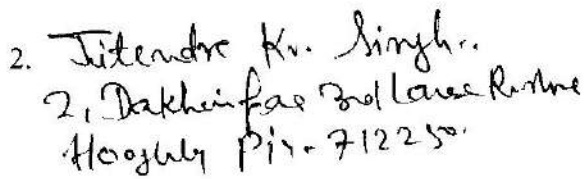 2. Jitendra Kr. Singh.
2, Dakhinpara 3rd Lane Rishra
Hooghly Pin- 712250.